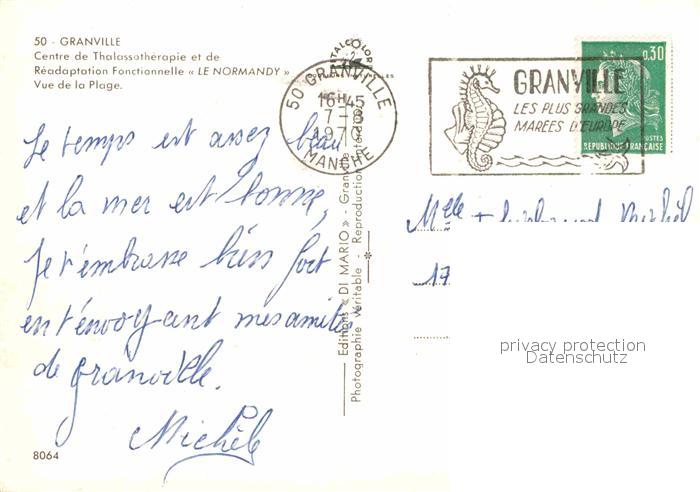 50 - GRANVILLE
Centre de Thalassothérapie et de
Réadaptation Fonctionnelle « LE NORMANDY »
Vue de la Plage.
Le temps est assez beau
et la mer est bonne,
Je t'embrasse bien fort
en t'envoyant mes amitiés
de Granville.
Michèle
8064
Editions « DI MARIO » - Granville
Photographie Véritable - Reproduction
50 GRANVILLE
16H45
7-8
MANCHE
GRANVILLE
LES PLUS GRANDES
MARÉES D'EUROPE
0,30
POSTES
REPUBLIQUE FRANÇAISE
Melle
17
privacy protection
Datenschutz